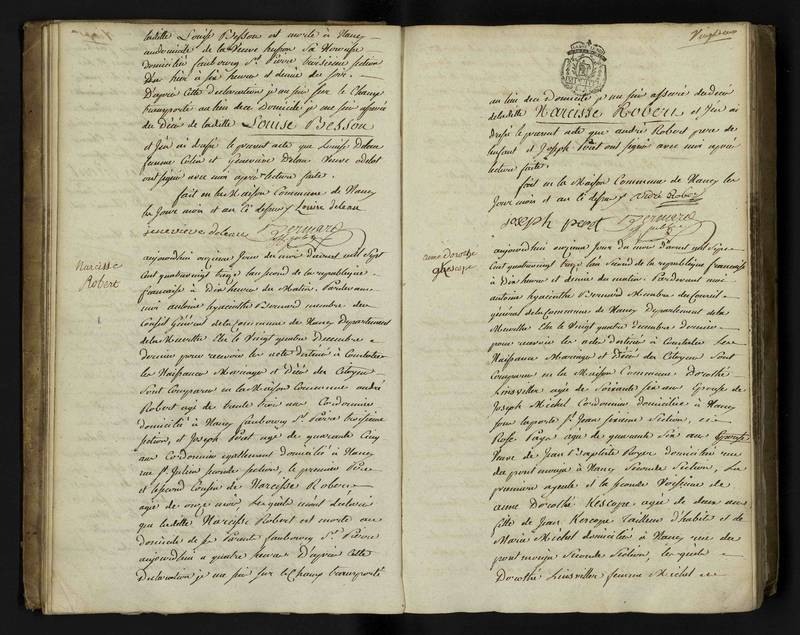 ladite Louise Besson est morte à Nancy
au domicile de la Veuve
domiciliée faubourg St. Pierre troisieme section
hier à six heures et demie du soir.
D'après cette declaration je me suis sur le Champ
transporté au lieu dudit Domicile je me suis assuré
du Décés de ladite Louise Besson
et j'en ai dressé le present acte que Louise Deleau
femme Colin et Genevieve Delau Veuve
ont signé avec moi après lecture faite.
fait en la Maison Commune de Nancy
les Jour mois et an ci dessus / Louise deleau
genevieve deleau Bernard
off. public
Narcisse
Robert
aujourdhui onzieme Jour du mois Davril mil Sept
Cent quatrevingt treize l'an second de la république
francaise à Dix heures du Matin. Pardevant
moi antoine hyacinthe Bernard membre du
Conseil Général de la Commune de Nancy Departement
de la Meurthe Elu le Vingt quatre Decembre
dernier pour recevoir les acte destinés à Constater
les Naissance Mariages et Décés des Citoyens
Sont Comparus en la Maison Commune andré
Robert agé de trente trois ans Cordonnier
domicilié à Nancy faubourg St. Pierre troisieme
section, et Joseph Perot agé de quarante Cinq
ans Cordonnier egallement domicilié à Nancy
rue St. Julien seconde section, le premier Pere
et le second Cousin de Narcisse Robert
agée de onze mois Lesquels m'ont declaré
que ladite Narcisse Robert est morte au
domicile de ses Parents faubourg St. Pierre
aujourdhui a quatre heures D'après cette
Declaration je me suis sur le Champ transporté
Vingt
au lieu dudit domicile je me suis assuré du décés
de ladite Narcisse Robert et j'en ai
dressé le present acte que andré Robert pere de
l'enfant et Joseph Perot ont signé avec moi après
lecture faite.
fait en la Maison Commune de Nancy les
Jour mois et an ci dessus / André Robert
joseph perot Bernard
off. public
anne dorothe
aujourdhui onzieme Jour du mois Davril mil Sept
Cent quatrevingt treize l'an Second de la république francaise
à Dix heures et demie du matin. Pardevant moi
antoine hyacinthe Bernard Membre du Conseil
général de la Commune de Nancy Departement de la
Meurthe Elu le Vingt quatre Decembre dernier
pour recevoir les acte destinés à Constater les
Naissance Mariage et Décés des Citoyens Sont
Comparus en la Maison Commune Dorothé
Linsviller agée de Soixante six ans Epouse de
Joseph Michel Cordonnier domiciliée à Nancy
sous la porte St. Jean sixieme Section, et
Rose Paye agée de quarante Six ans
Veuve de Jean Baptiste Royer domiciliée rue
du pont mouja à Nancy Seconde Section, La
premiere ayeule et la seconde Voisine de
anne Dorothé Kescope agée de deux ans
fille de Jean Kescope tailleur d'habits et de
Marie Michel domicilié à Nancy rue du
pont mouja Seconde Section, lesquelles
Dorothé Linsviller femme Michel